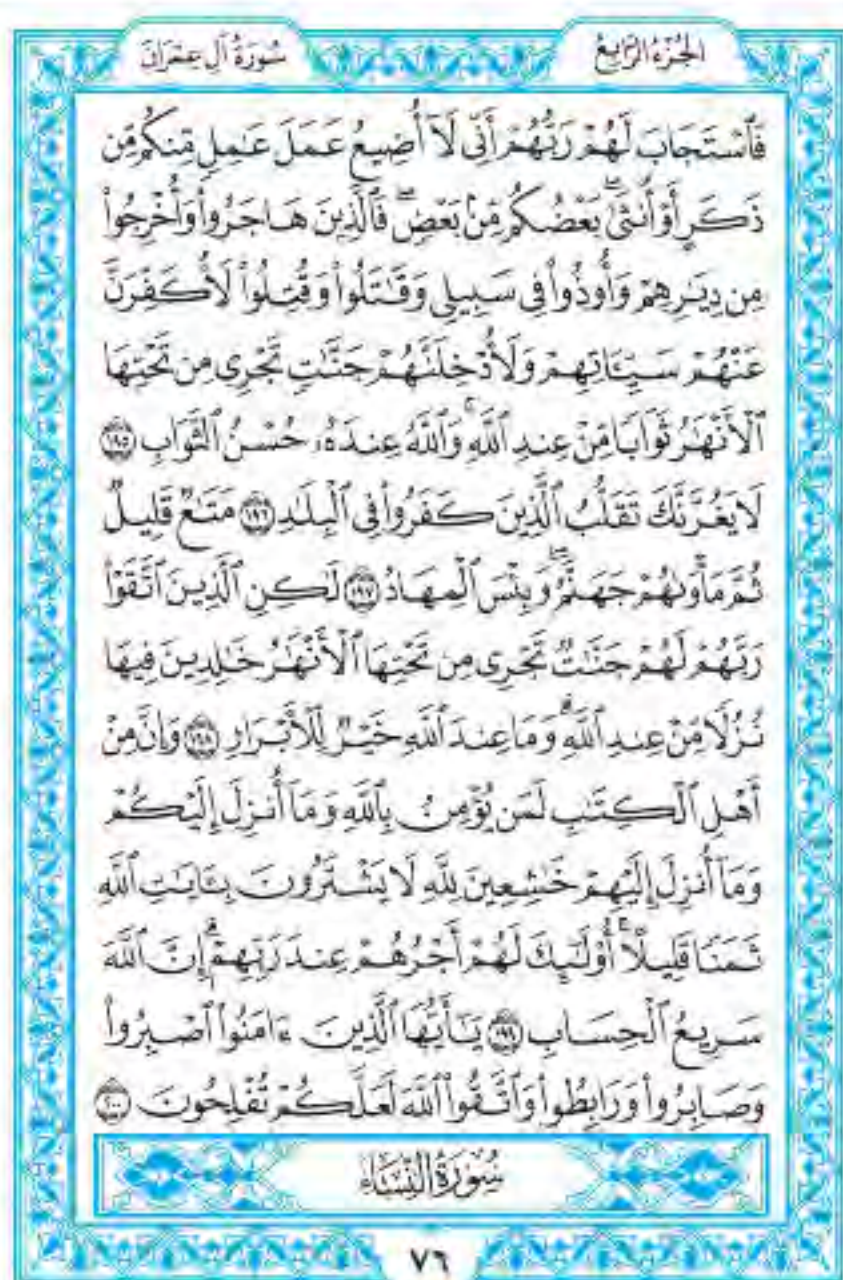 سُورَةُ آلِ عِمْرَانَ
الجُزْءُ الرَّابِعُ
فَٱسْتَجَابَ لَهُمْ رَبُّهُمْ أَنِّى لَآ أُضِيعُ عَمَلَ عَٰمِلٍ مِّنكُم مِّن
ذَكَرٍ أَوْ أُنثَىٰ ۖ بَعْضُكُم مِّنۢ بَعْضٍ ۖ فَٱلَّذِينَ هَاجَرُوا۟ وَأُخْرِجُوا۟
مِن دِيَٰرِهِمْ وَأُوذُوا۟ فِى سَبِيلِى وَقَٰتَلُوا۟ وَقُتِلُوا۟ لَأُكَفِّرَنَّ
عَنْهُمْ سَيِّـَٔاتِهِمْ وَلَأُدْخِلَنَّهُمْ جَنَّٰتٍ تَجْرِى مِن تَحْتِهَا
ٱلْأَنْهَٰرُ ثَوَابًا مِّنْ عِندِ ٱللَّهِ ۗ وَٱللَّهُ عِندَهُۥ حُسْنُ ٱلثَّوَابِ ١٩٥
لَا يَغُرَّنَّكَ تَقَلُّبُ ٱلَّذِينَ كَفَرُوا۟ فِى ٱلْبِلَٰدِ ١٩٦ مَتَٰعٌ قَلِيلٌ
ثُمَّ مَأْوَىٰهُمْ جَهَنَّمُ ۚ وَبِئْسَ ٱلْمِهَادُ ١٩٧ لَٰكِنِ ٱلَّذِينَ ٱتَّقَوْا۟
رَبَّهُمْ لَهُمْ جَنَّٰتٌ تَجْرِى مِن تَحْتِهَا ٱلْأَنْهَٰرُ خَٰلِدِينَ فِيهَا
نُزُلًا مِّنْ عِندِ ٱللَّهِ ۗ وَمَا عِندَ ٱللَّهِ خَيْرٌ لِّلْأَبْرَارِ ١٩٨ وَإِنَّ مِنْ
أَهْلِ ٱلْكِتَٰبِ لَمَن يُؤْمِنُ بِٱللَّهِ وَمَآ أُنزِلَ إِلَيْكُمْ
وَمَآ أُنزِلَ إِلَيْهِمْ خَٰشِعِينَ لِلَّهِ لَا يَشْتَرُونَ بِـَٔايَٰتِ ٱللَّهِ
ثَمَنًا قَلِيلًا ۗ أُو۟لَٰٓئِكَ لَهُمْ أَجْرُهُمْ عِندَ رَبِّهِمْ ۗ إِنَّ ٱللَّهَ
سَرِيعُ ٱلْحِسَابِ ١٩٩ يَٰٓأَيُّهَا ٱلَّذِينَ ءَامَنُوا۟ ٱصْبِرُوا۟
وَصَابِرُوا۟ وَرَابِطُوا۟ وَٱتَّقُوا۟ ٱللَّهَ لَعَلَّكُمْ تُفْلِحُونَ ٢٠٠
سُورَةُ النِّسَاءِ
٧٦